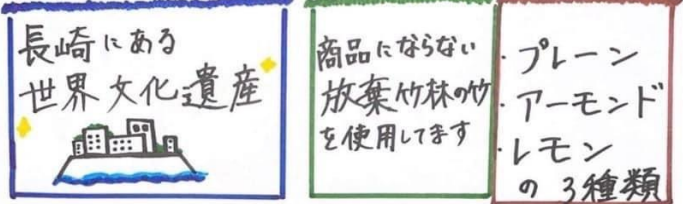 長崎にある
世界文化遺産
商品にならない
放棄竹林の竹
を使用してます
・プレーン
・アーモンド
・レモン
の3種類